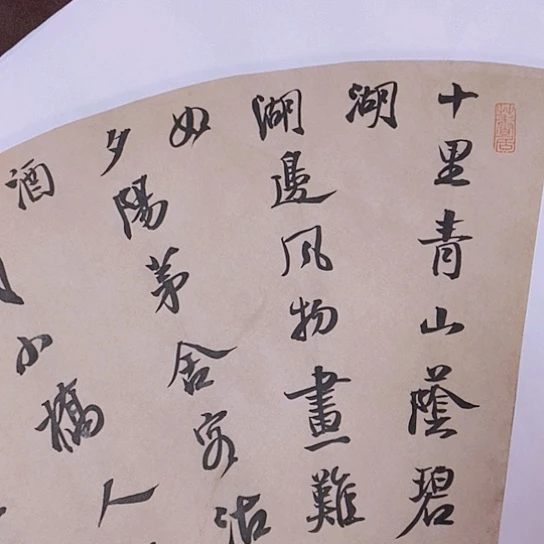 十里青山蔭碧
湖
湖邊風物畫難
如
夕陽茅舍客沽
酒
小橋人